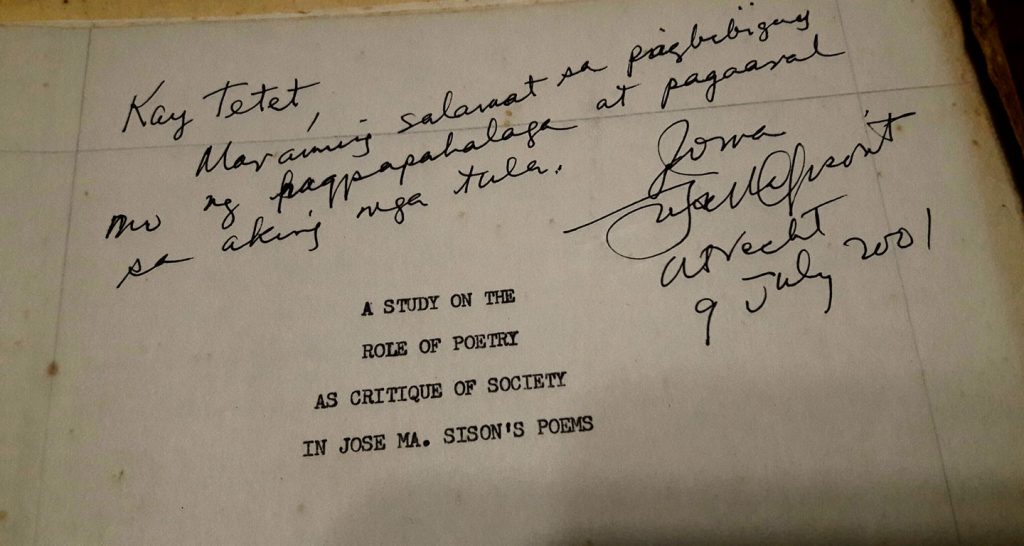 Kay Tetet,
Maraming salamat sa pagbibigay
mo ng pagpapahalaga at pagaaral
sa aking mga tula.
Joma
Utrecht
9 July 2001
A STUDY ON THE
ROLE OF POETRY
AS CRITIQUE OF SOCIETY
IN JOSE MA. SISON'S POEMS